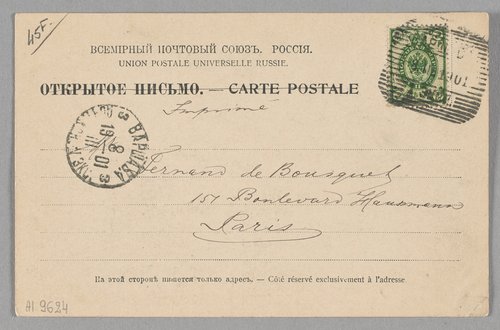 45F.
ВСЕМІРНЫЙ ПОЧТОВЫЙ СОЮЗЪ. РОССІЯ.
UNION POSTALE UNIVERSELLE RUSSIE.
ОТКРЫТОЕ ПИСЬМО. — CARTE POSTALE
Imprimé
ВАРШАВА
19 III 01
8
1901
Fernand de Bousquet
151 Boulevard Hausmann
Paris
На этой сторонѣ пишется только адресъ. — Côté réservé exclusivement à l'adresse
AI 9624